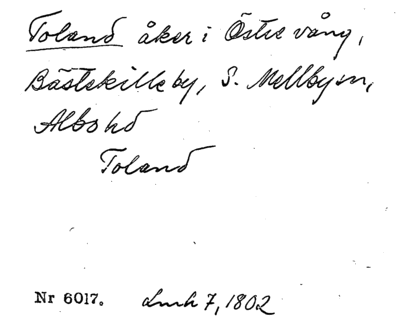 Toland åker i Östre vång,
Bästekille by, S. Mellby sn,
Albo hd
Toland
Nr 6017. Lmh 7, 1802